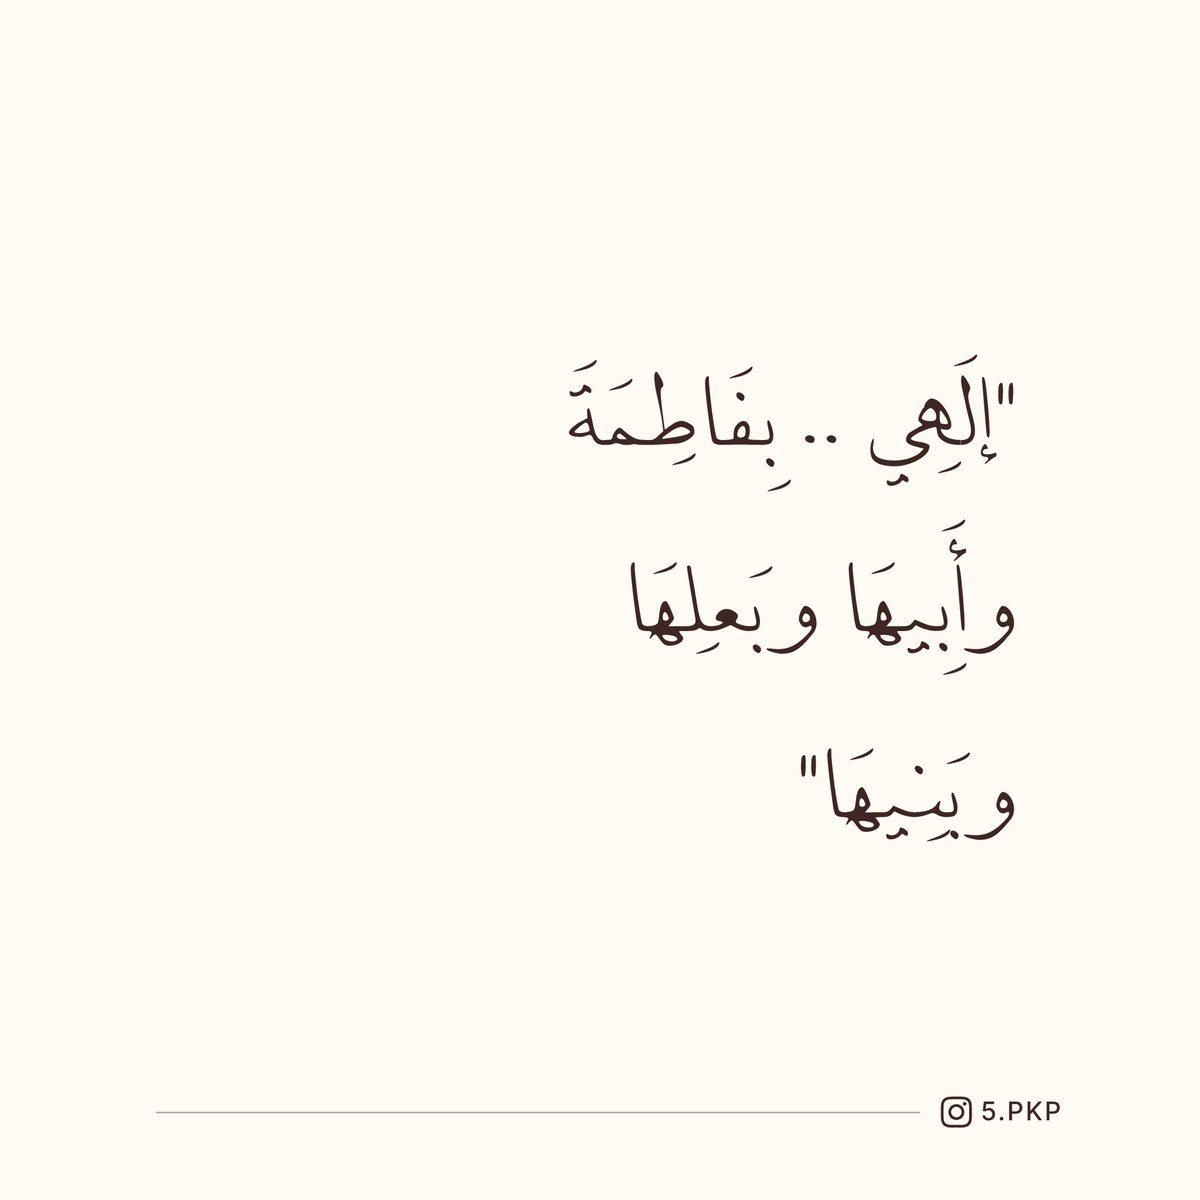 "إلَهِي .. بِفَاطِمَةَ
وأَبِيهَا وبَعلِهَا
وبَنِيهَا"
5.PKP